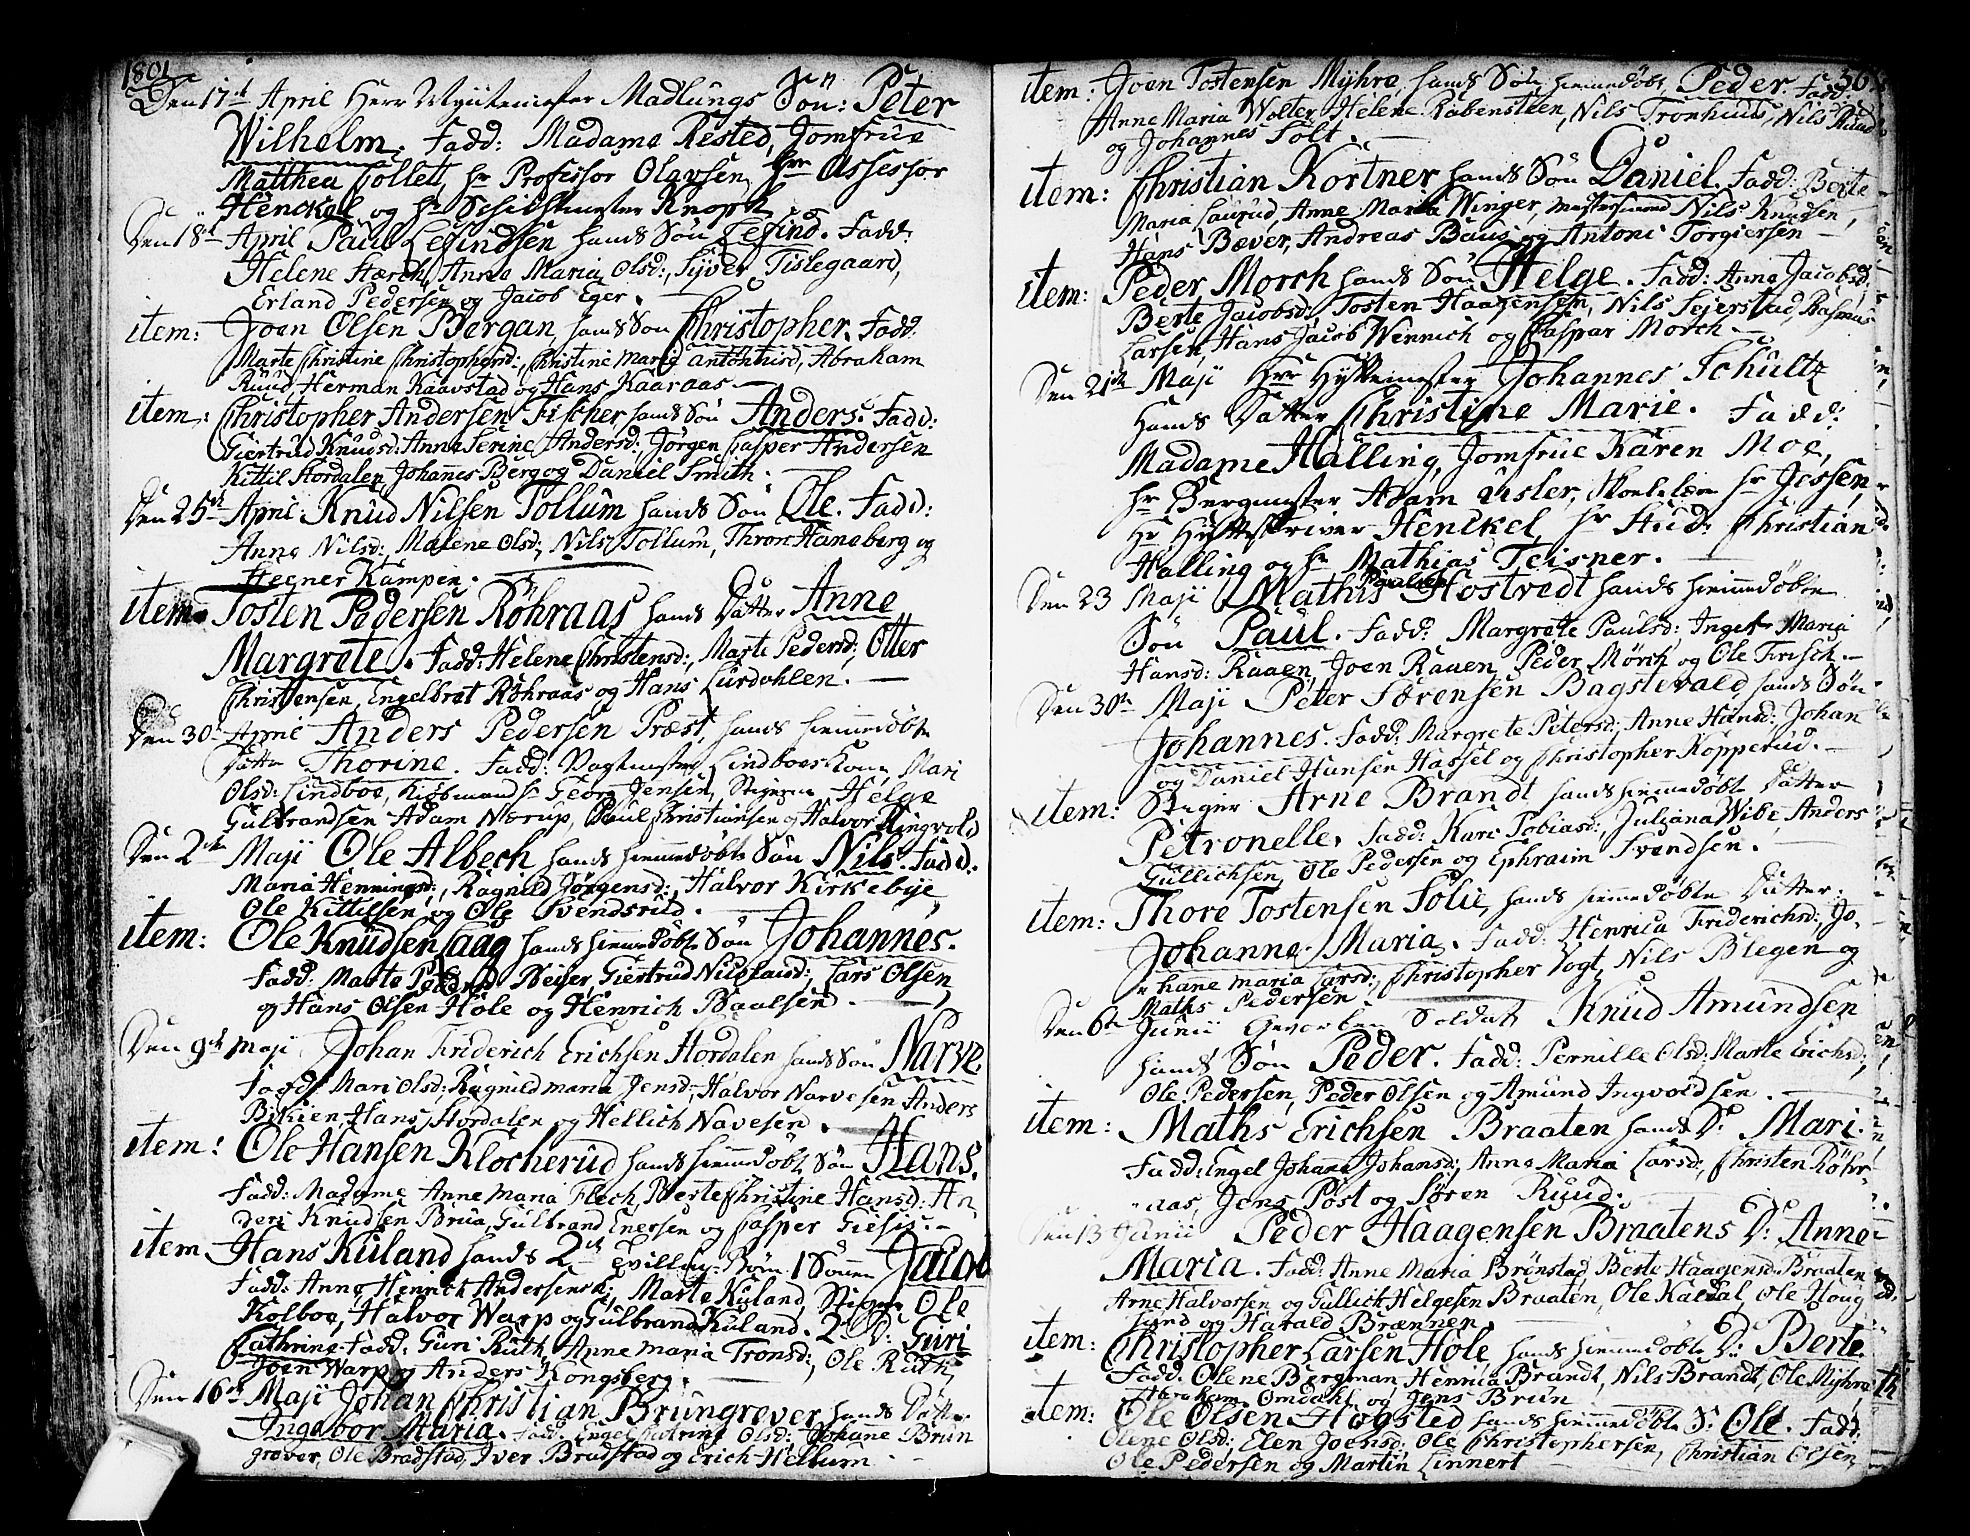 1801
Den 17de April Herr Myntmester Madlungs Søn: Peter
Wilhelm. Fadd: Madame Rested, Jomfrue
Matthea Collett, hr Professor Olavsen, hrr Assessor
Henckel og hr Schichtmester Knoph
Den 18de April Paul Lefindsen hands Søn Lefind. Fadd:
Helene Stærch, Anne Maria Olsd:, Syver Tislegaard,
Erland Pedersen og Jacob Eger.
item: Joen Olsen Bergan, hands Søn Christopher. Fadd:
Marte Christine Christophersd:, Christine Maria Antonnisd, Abraham
Ruud, Herman Raavstad og Hans Kaaraas
item: Christopher Andersen Fischer hands Søn Anders. Fadd:
Giertrud Knudsd: Anne Serine Andersd:, Jørgen Casper Andersen
Kittil Hordalen, Johannes Berg og Daniel Smith.
Den 25de April Knud Nilsen Tollum hands Søn Ole. Fadd:
Anne Nilsd:, Malene Olsd:, Nils Tollum, Thron Haneberg og
Stegner Kampen.
item. Tosten Pedersen Röhraas hands Datter Anne
Margrete. Fadd: Helene Christensd:, Marte Pedersd:, Otter
Christensen, Engelbret Röhraas og Hans Lurdohlen.
Den 30 April Anders Pedersen Præst, hands hiemmedøbte
Datter Thorine. Fadd: Vagtmester Lindboes Kone Mari
Olsd: Lindboe, Kiøbmand hr Georg Jensen, Stigerne Helge
Gulbrandsen Adam Nærup, Poul Christiansen og Halvor Ringvold
Den 2de Maji Ole Albech hands hiemmedøbte Søn Nils. Fadd:
Maria Henningsd:, Ragnild Jørgensd:, Halvor Kirkebye,
Ole Kittilsen og Ole Svendsrud.
item: Ole Knudsen Laag hands hiemmedøbte Søn Johannes.
Fadd: Marte Pedersd Beyer, Giertrud Nicolaisd:, Lars Olsen,
og Hans Olsen Hole og Henrich Paalsen.
Den 9de Maji Johan Friderich Erichsen Hordalen hands Søn Narve.
Fadd: Mari Olsd:, Ragnild Maria Jensd:, Halvor Narvesen Anders
Hans Hordalen og Hellich Navesen.
item: Ole Hansen Klocherud hands hiemmedøbte Søn Hans.
Fadd: Madame Anne Maria Flech, Berte Christine Hansd: An,
ders Knudsen Brua, Gulbrand Enersen og Casper
item Hans Kuland hands 2de Tvilling Børn. 1 Sønnen Jacob
Fadd: Anne Henrich Andersens K:, Marte Kuland, Stiger Ole
Kolboe, Halvor Warp og Gulbrand Kuland. 2 D: Guri
Cathrine. Fadd: Guri Ruth, Anne Maria Tronsd:, Ole Ruth,
Joen Warp og Anders Kongsberg.
Den 16de Maji Johan Christian Brungrøver hands Datter
Ingebor Maria. Fadd: Engel Catrine Olsd:, Johane Brun
grøver, Ole Bradstad, Iver Bradstad og Erich Helbum
36
item: Joen Tostensen Myhre, hands Søn hiemmedøbt Peder. Fadd:
Anne Maria Wolter, Helene Rabensteen, Nils Tronhuus, Nils Ruud
og Johannes Tolt.
item: Christian Kortner hands Søn Daniel. Fadd: Berte
Maria Laurud, Anne Maria Winger, Mestersvend Nils Knudsen,
Hans Bæver, Andreas Baus og Antoni Torgiersen
item: Peder Morch hands Søn Helge. Fadd: Anne Jacobsd,
Berte Jacobsd: Tosten Haagensen, Nils Sejerstad, Rasmus
Larsen, Hans Jacob Wennich og Caspar Morch
Den 21de Maji Hrr Hyttemester Johannes Schultz
Hands Datter Christine Marie. Fadd:
Madame Halling, Jomfrue Karen Moe,
hr Bergmester Adam Usler, Skoelelærer hr Jessen,
Hr Hytteskriver Henckel, hr Stud: Christian
Halling og hr Mathias Teisner.
Den 23 Maji Mathis Paulsen Hostvedt hands hiemmedøbte
Søn Paul. Fadd: Margrete Paulsd: Ingeb Maria
Hansd: Raaen, Joen Raaen, Peder Mörch og Ole Frisch.
Den 30te Maji Peter Sørensen Bagstevald hands Søn
Johannes. Fadd: Margrete Petersd:, Anne Hansd: Johan
og Daniel Hansen Hassel og Christopher Kopperud.
item: Stiger Arne Brandt hands hiemmedøbte Datter
Petronelle. Fadd: Kari Tobiasd:, Juliana Wibe, Anders
Gullichsen, Ole Pedersen og Ephraim Svendsen.
item: Thore Tostensen Folie, hands hiemmedøbte Datter:
Johanne Maria. Fadd: Henrica Friderichsd:, Jo-
hane Maria Larsd:, Christopher Vogt, Nils Blegen og
Maths Pedersen
Den 6te Junii Gevorben Soldat Knud Amundsen
hands Søn Peder. Fadd: Pernille Olsd: Marte Erichsd:,
Ole Pedersen, Peder Olsen og Amund Ingvoldsen.
item: Maths Erichsen Braaten hands D: Mari.
Fadd: Engel Johanne Johansd:, Anne Maria Larsd:, Christen Röhr-
aas, Jens Post og Søren Ruud.
Den 13 Junii Peder Haagensen Braatens D: Anne
Maria. Fadd: Anne Maria Brönstad, Berte Haagensd: Braaten
Arne Halvorsen og Gullich Helgesen Braaten, Ole Kaldal, Ole Houg
lund og Harald Brænnen.
item: Christopher Larsen Hole, hands hiemmedøbte D: Berte
Fadd. Olene Bergman, Hennica Brandt, Nils Brandt, Ole Myhre
Abraham Omdahl og Jens Brun
item: Ole Olsen Hogsted hands hiemmedøbte S: Ole. Fadd:
Olene Olsd:, Elen Joensd:, Ole Christophersen, Christian Olsen,
Ole Pedersen og Martin Linnert